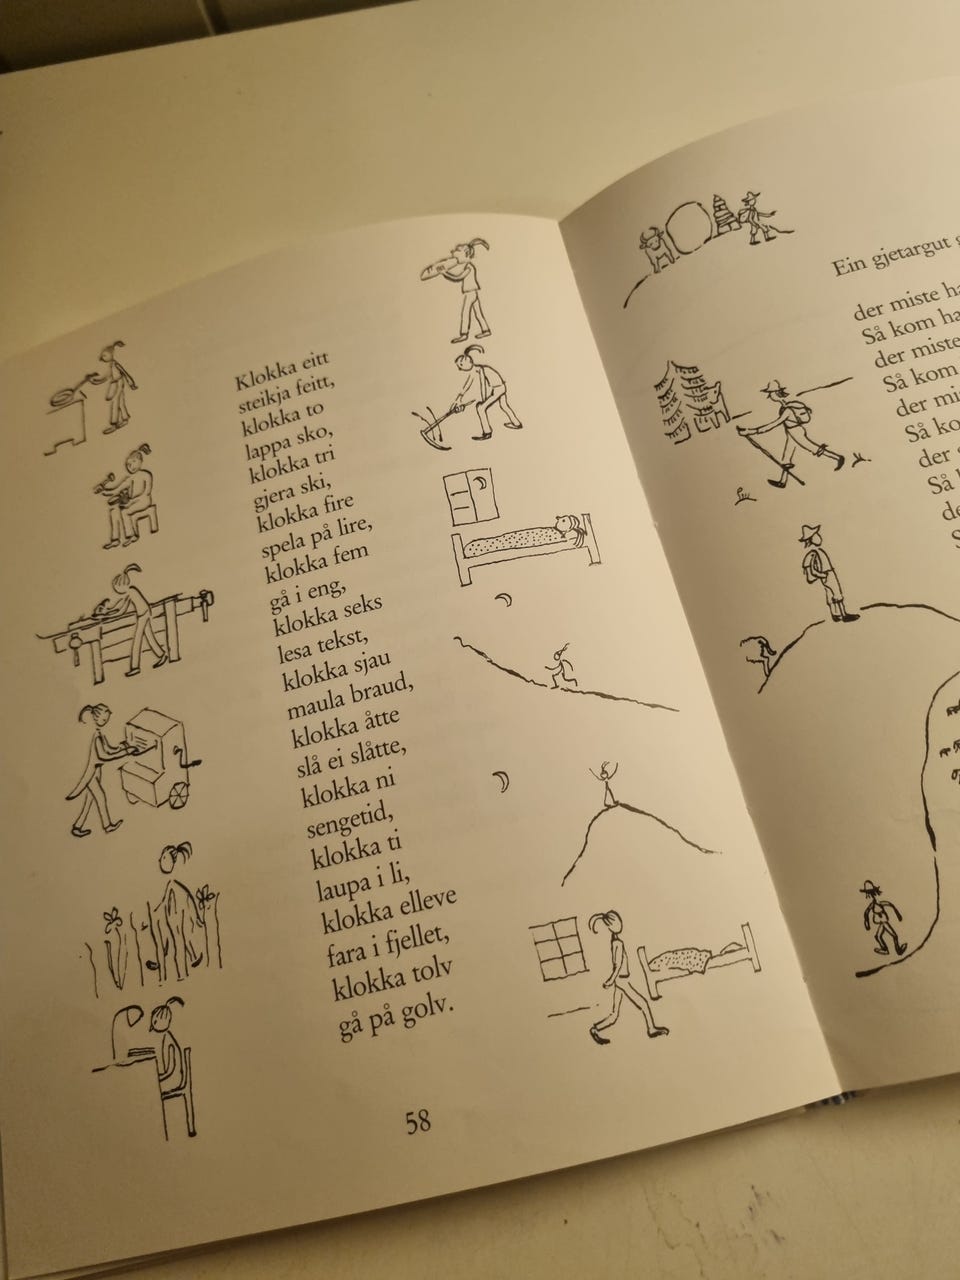 Klokka eitt
steikja feitt,
klokka to
lappa sko,
klokka tri
gjera ski,
klokka fire
spela på lire,
klokka fem
gå i eng,
klokka seks
lesa tekst,
klokka sjau
maula braud,
klokka åtte
slå ei slåtte,
klokka ni
sengetid,
klokka ti
laupa i li,
klokka elleve
fara i fjellet,
klokka tolv
gå på golv.
58
Ein gjetargut
der miste
Så kom
der miste
Så kom
der
Så
der
Så